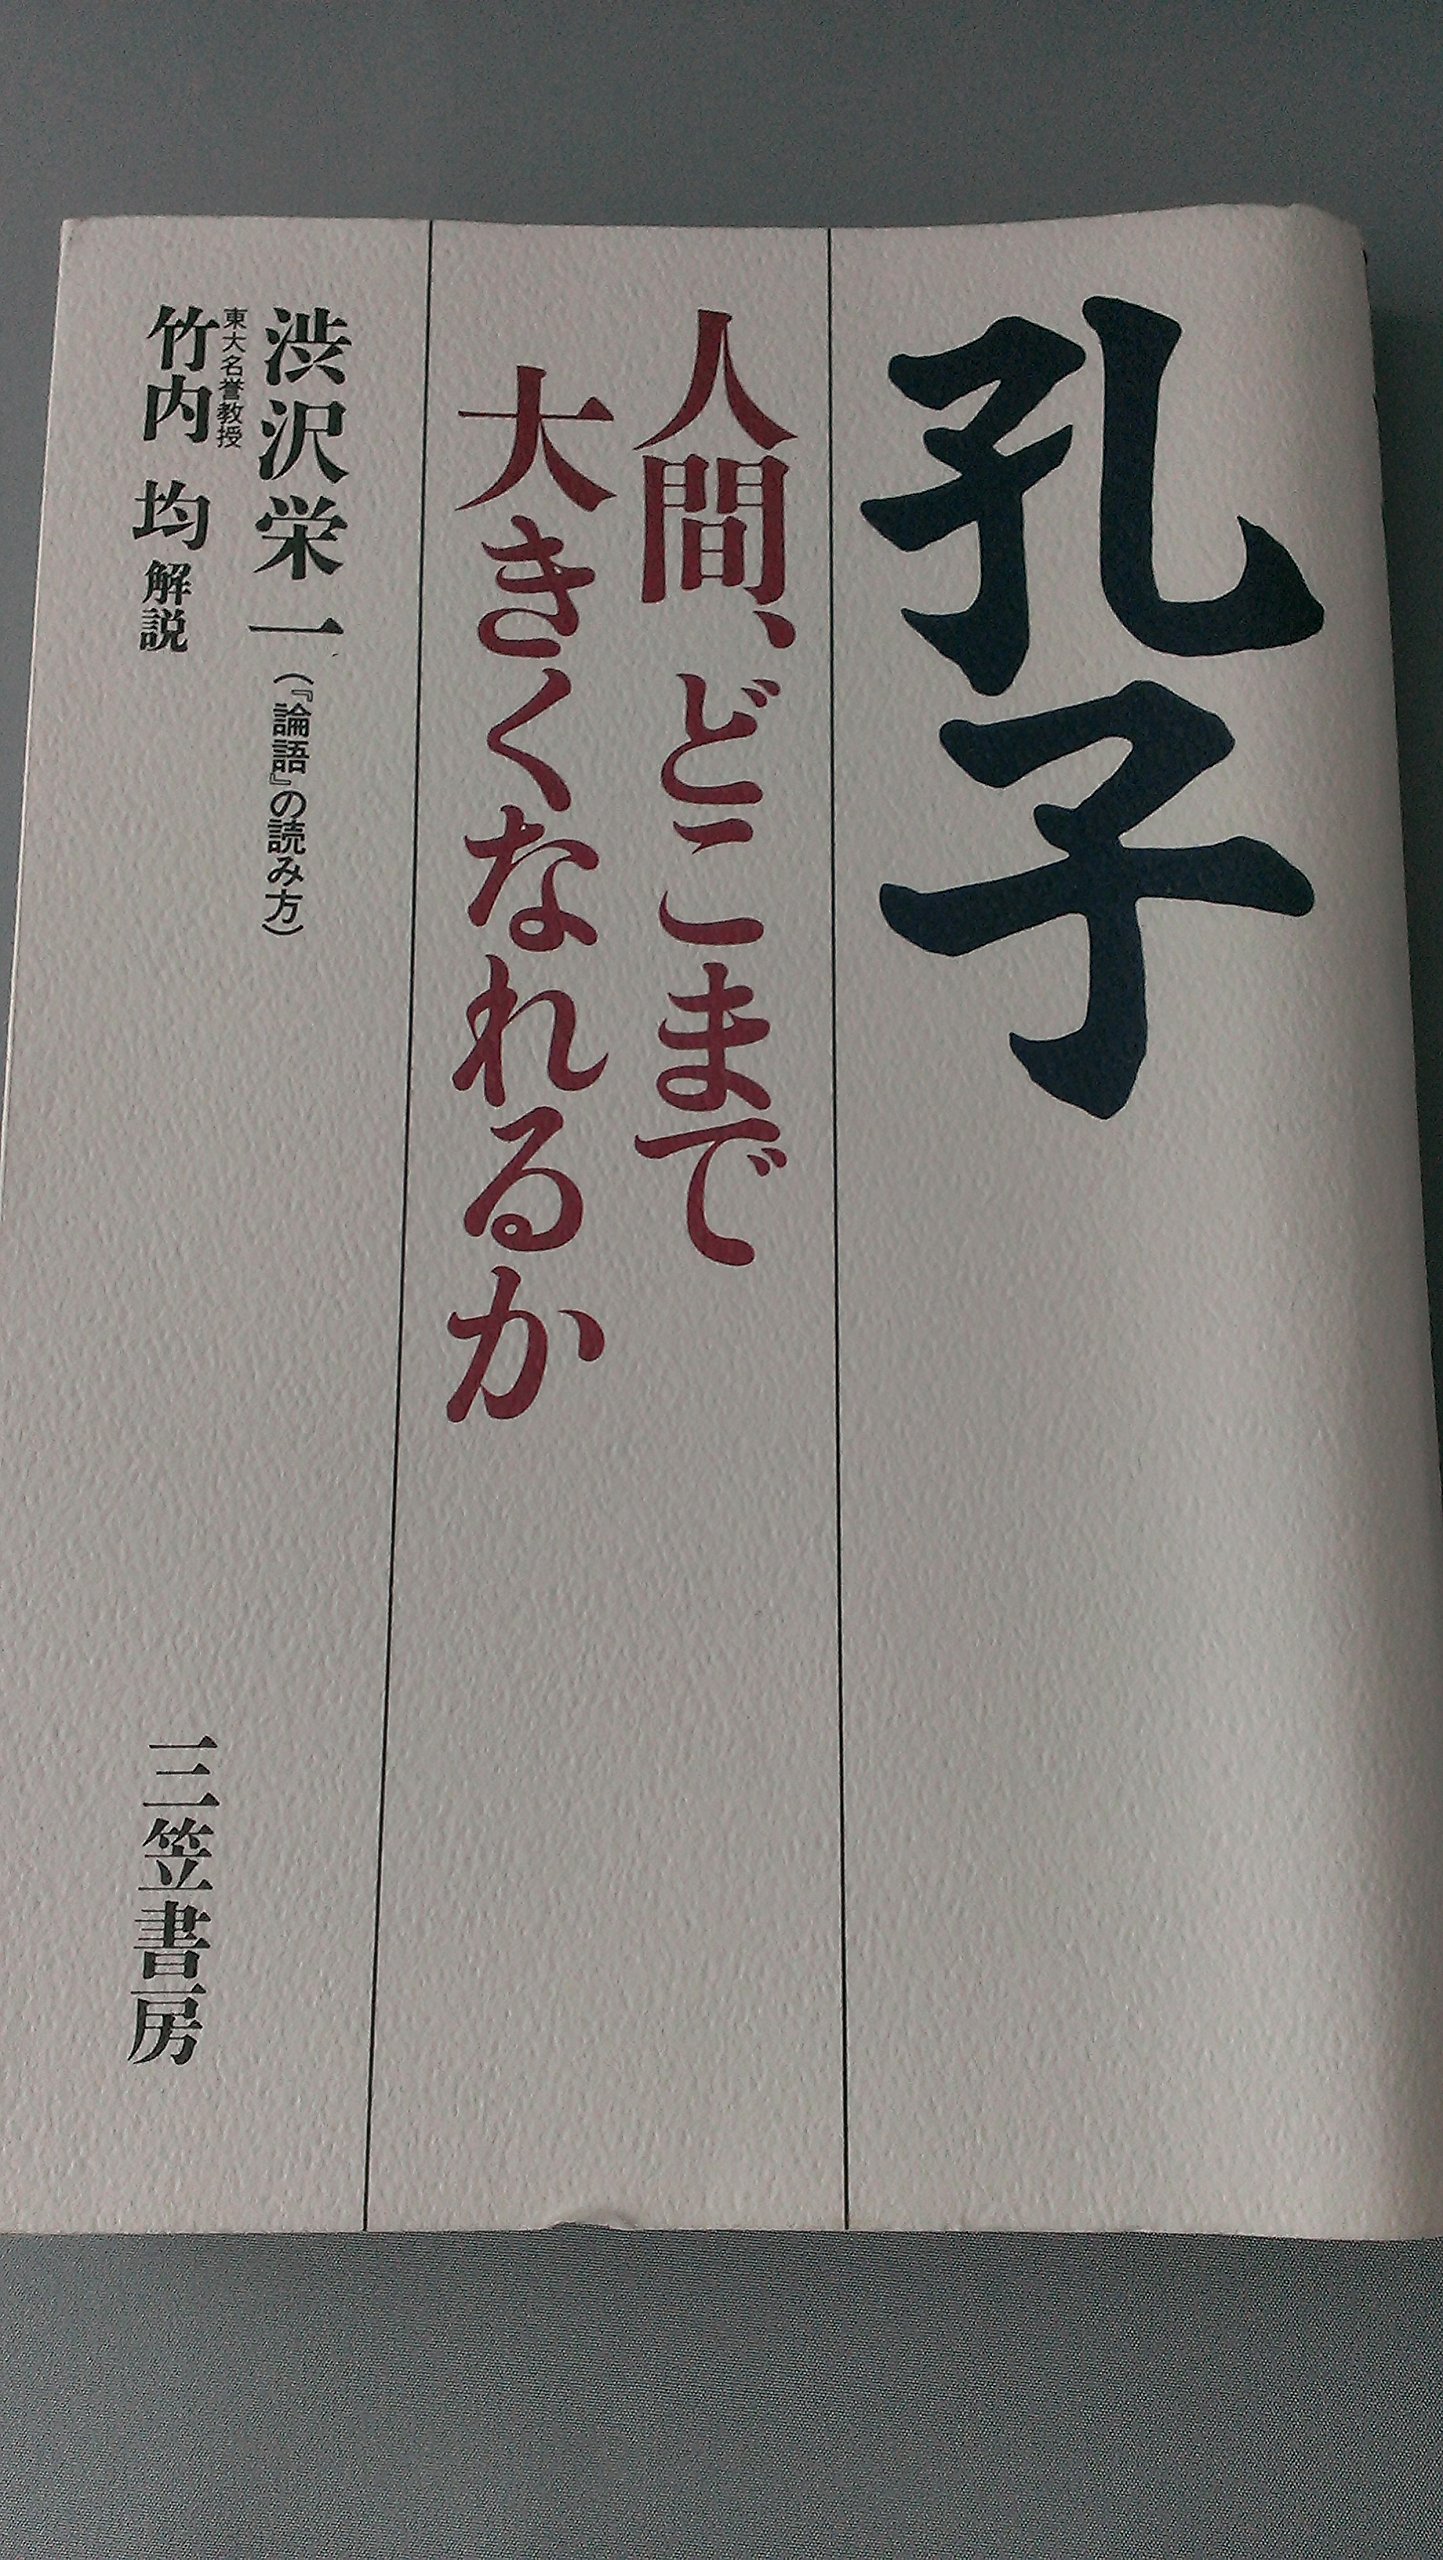 孔子
人間、どこまで
大きくなれるか
渋沢栄一(『論語』の読み方)
東大名誉教授
竹内 均 解説
三笠書房